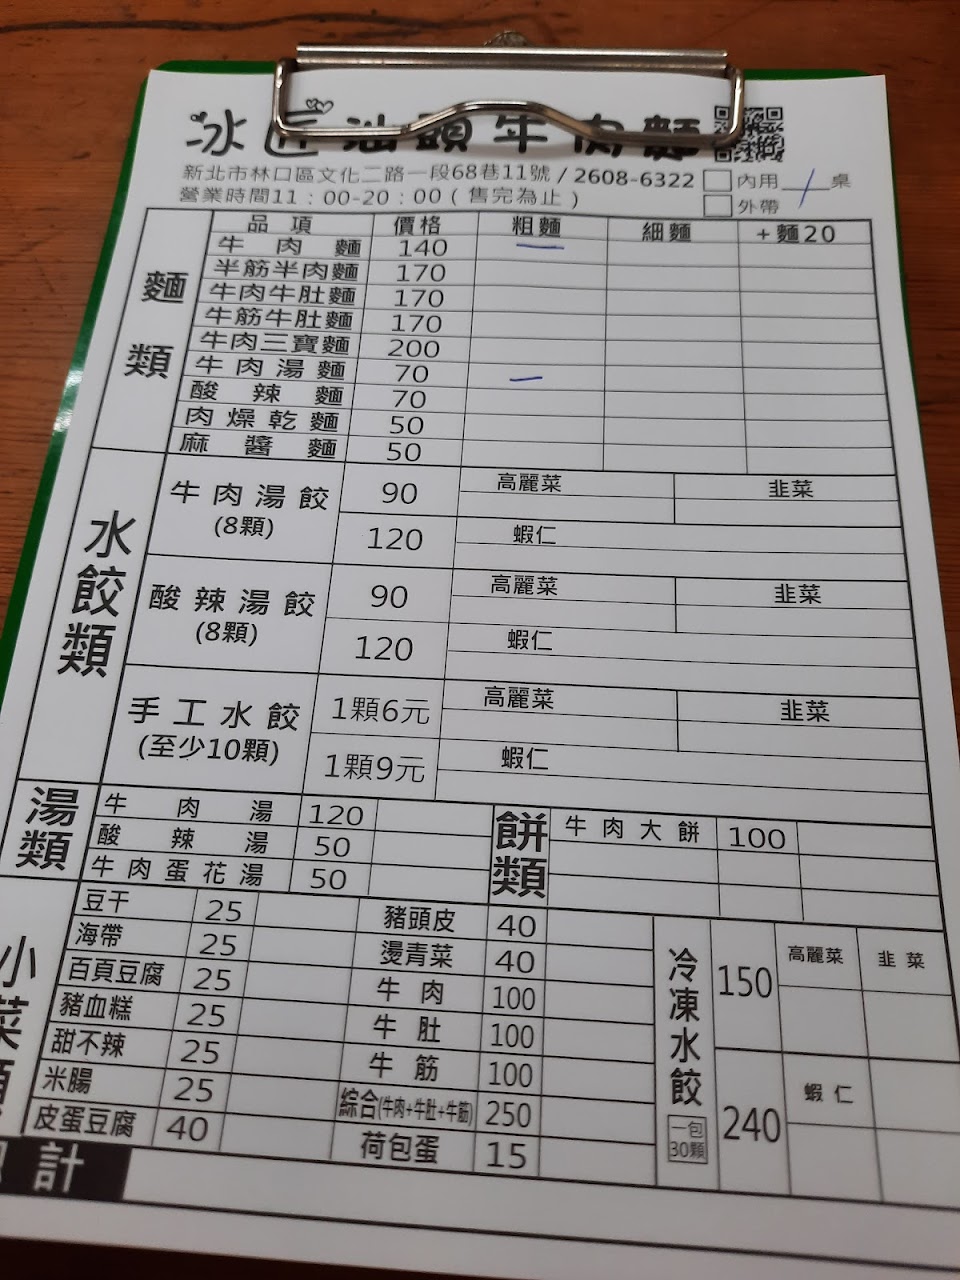 冰匠汕頭牛肉麵
新北市林口區文化二路一段68巷11號 / 2608-6322 □內用 / 桌
營業時間11：00-20：00 ( 售完為止 ) □外帶
品項 價格 粗麵 細麵 +麵20
麵類
牛肉麵 140 —
半筋半肉麵 170
牛肉牛肚麵 170
牛筋牛肚麵 170
牛肉三寶麵 200
牛肉湯麵 70 —
酸辣麵 70
肉燥乾麵 50
麻醬麵 50
水餃類
牛肉湯餃 (8顆) 90 高麗菜 韭菜
120 蝦仁
酸辣湯餃 (8顆) 90 高麗菜 韭菜
120 蝦仁
手工水餃 (至少10顆) 1顆6元 高麗菜 韭菜
1顆9元 蝦仁
湯類
牛肉湯 120
酸辣湯 50
牛肉蛋花湯 50
餅類
牛肉大餅 100
小菜類
豆干 25 豬頭皮 40
海帶 25 燙青菜 40
百頁豆腐 25 牛肉 100
豬血糕 25 牛肚 100
甜不辣 25 牛筋 100
米腸 25 綜合(牛肉+牛肚+牛筋) 250
皮蛋豆腐 40 荷包蛋 15
冷凍水餃 一包30顆
150 高麗菜 韭菜
240 蝦仁
計